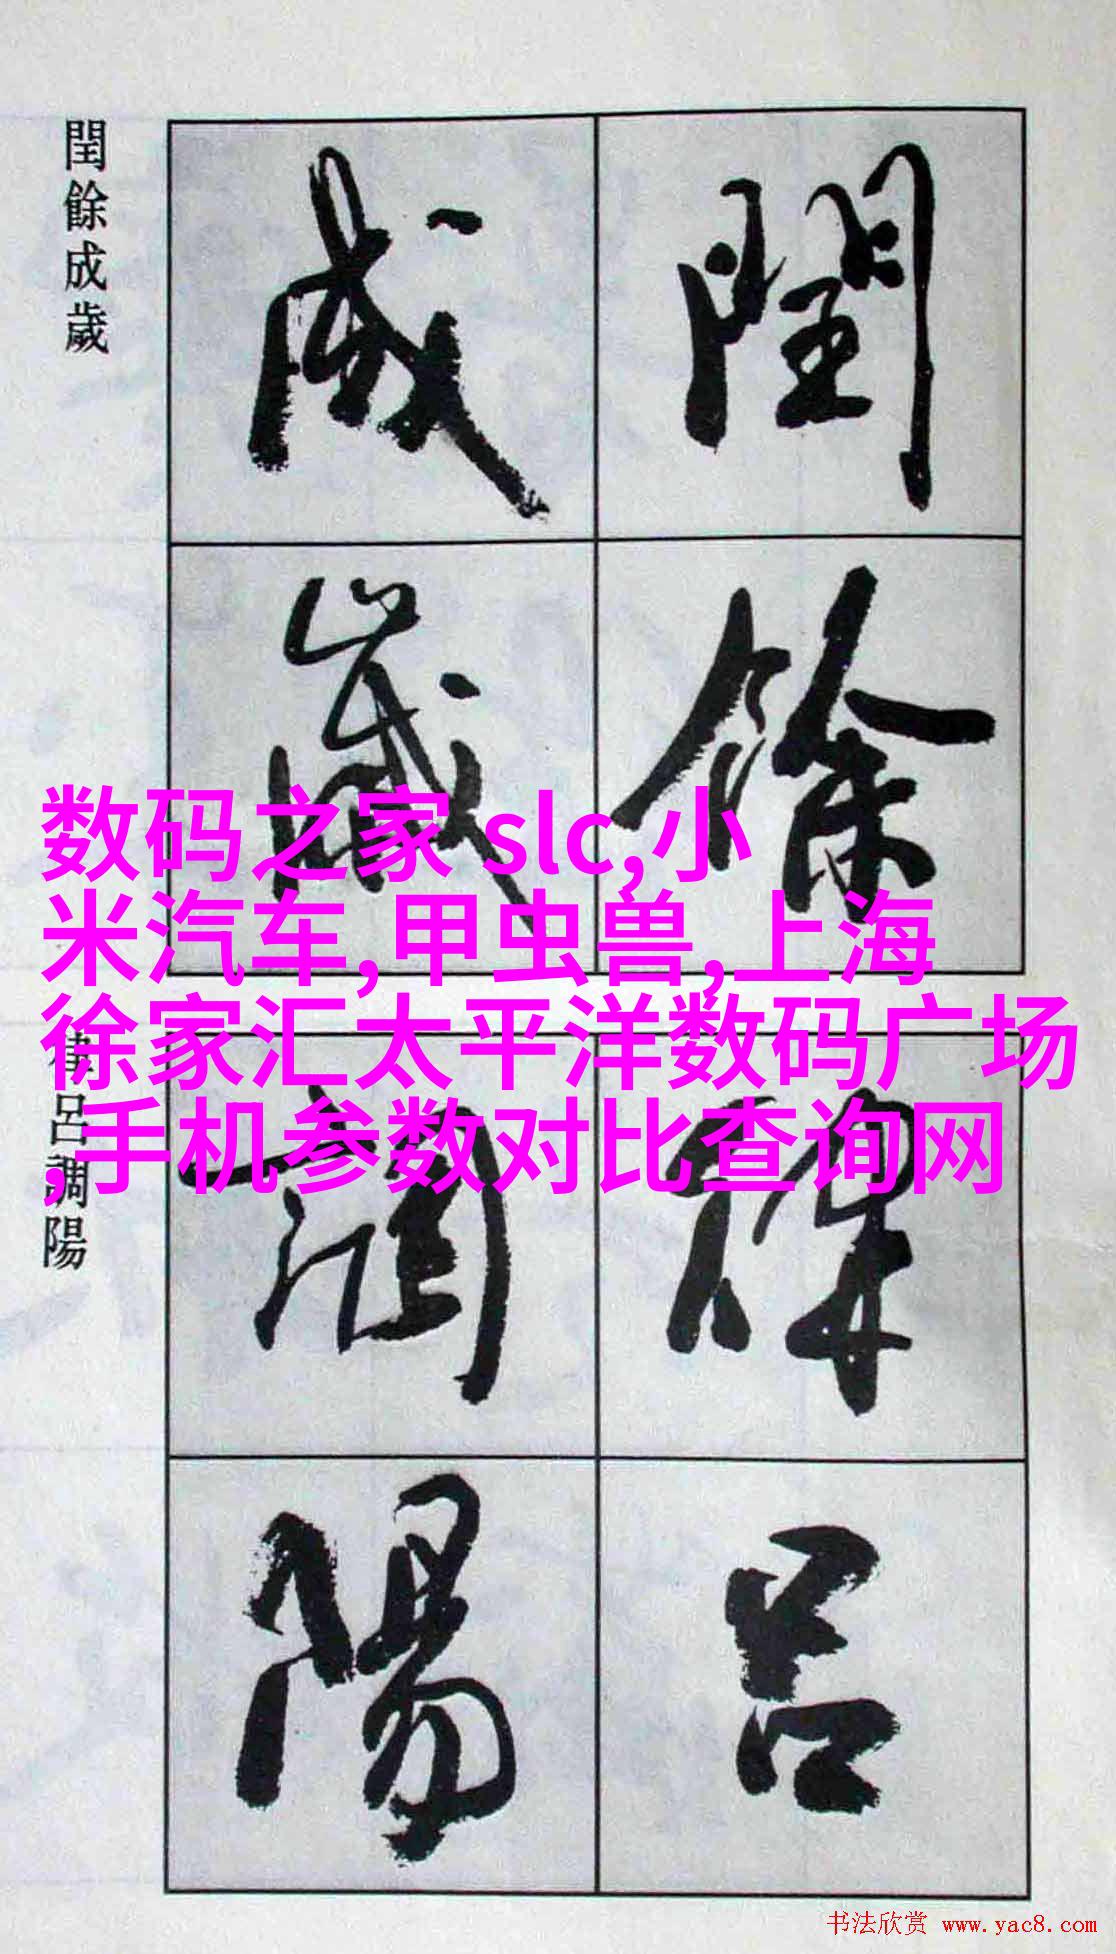 閏餘成歲
閏餘
成歲
数码之家 slc,小
米汽车,甲虫兽,上海
徐家汇太平洋数码广场
,手机参数对比查询网
律呂調陽
律呂
調陽
书法欣赏 www.yac8.com